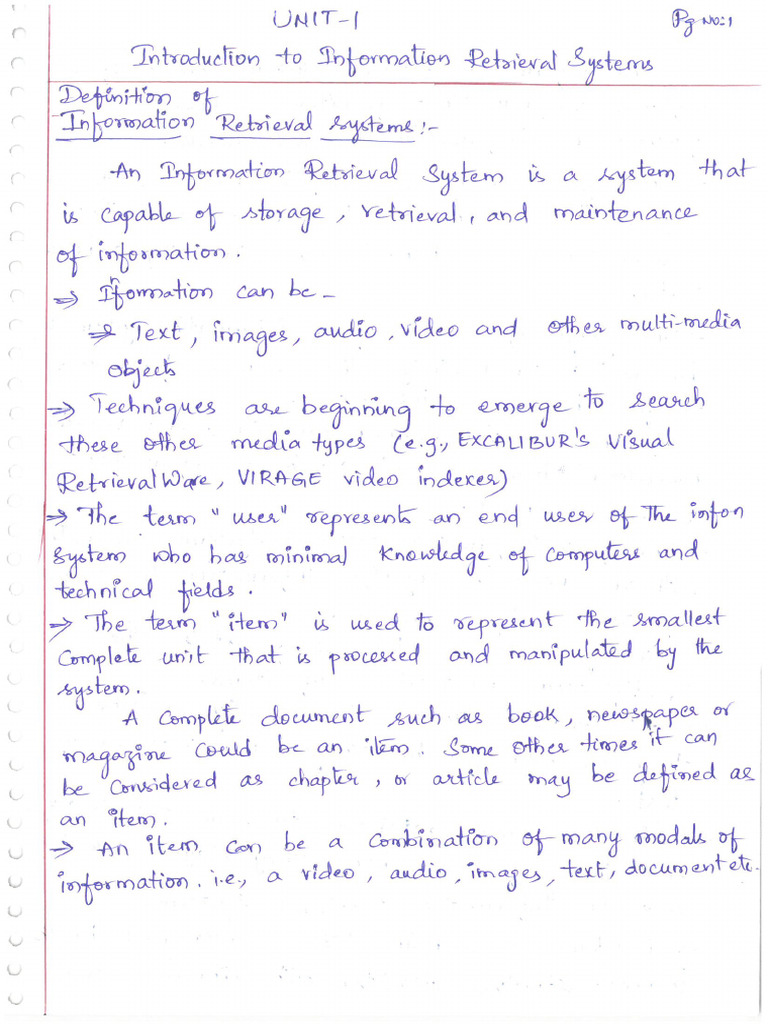 UNIT-1
Pg No:1
Introduction to Information Retrieval Systems
Definition of
Information Retrieval systems:-
An Information Retrieval System is a system that
is capable of storage, retrieval, and maintenance
of information.
⇒ Information can be -
⇒ Text, images, audio, video and other multi-media
objects
⇒ Techniques are beginning to emerge to search
these other media types (e.g., EXCALIBUR's Visual
RetrievalWare, VIRAGE video indexer)
⇒ The term "user" represents an end user of the infon
system who has minimal knowledge of computers and
technical fields.
⇒ The term "item" is used to represent the smallest
complete unit that is processed and manipulated by the
system.
A complete document such as book, newspaper or
magazine could be an item. Some other times it can
be considered as chapter, or article may be defined as
an item.
→ An item can be a combination of many modals of
information. i.e., a video, audio, images, text, document etc.